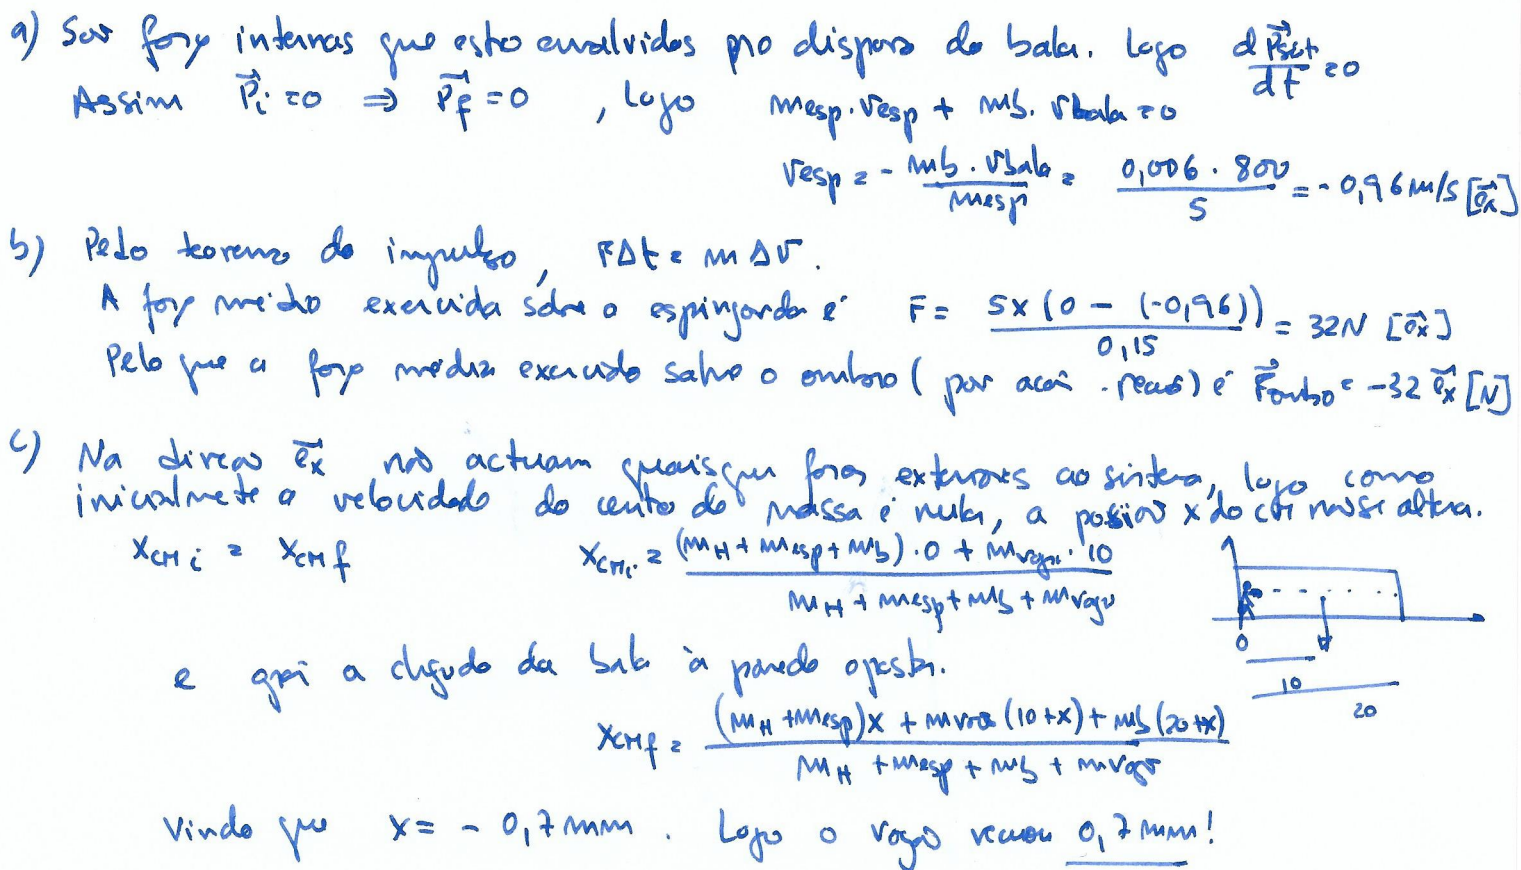 a) São forças internas que estão envolvidas no disparo da bala. Logo d P⃗sist/dt = 0
Assim P⃗i = 0 ⇒ P⃗f = 0 , logo mesp. vesp + mb. vbala = 0
vesp = - mb . vbala / mesp = 0,006 . 800 / 5 = - 0,96 m/s [e⃗x]
b) Pelo teorema do impulso, FΔt = m Δv.
A força média exercida sobre a espingarda é F = 5x (0 - (-0,96)) / 0,15 = 32N [e⃗x]
Pelo que a força média exercida sobre o ombro (por acção . reacção) é F⃗ombro = -32 e⃗x [N]
c) Na direção e⃗x não actuam quaisquer forças exteriores ao sistema, logo como
inicialmente a velocidade do centro de massa é nula, a posição x do CM não se altera.
xCMi = xCMf xCMi = (mH + mesp + mb) . 0 + mvagão . 10 / mH + mesp + mb + mvagão
0
10
20
e após a chegada da bala à parede oposta.
xCMf = (mH + mesp)x + mvagão (10+x) + mb (20+x) / mH + mesp + mb + mvagão
Vindo que x = - 0,7 mm . Logo o vagão recuou 0,7 mm!